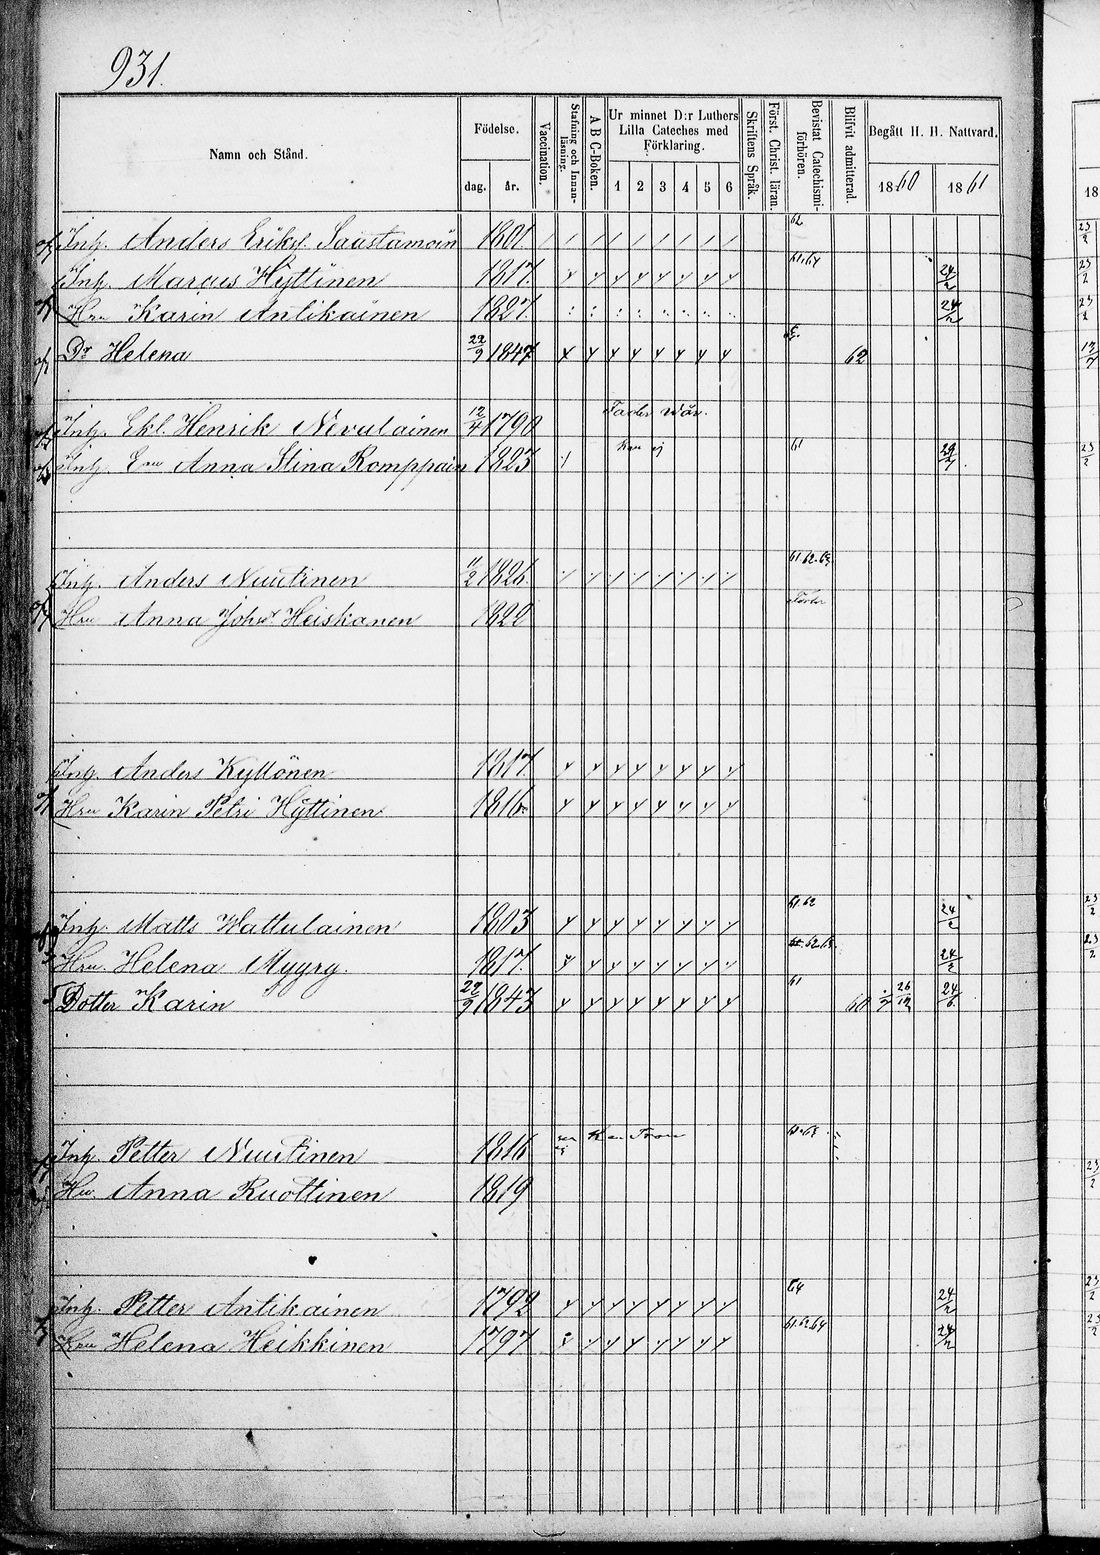 931.
Namn och Stånd. Födelse. dag. år. Vaccination. Stafning och Innanläsning. A B C-Boken. Ur minnet D:r Luthers Lilla Cateches med Förklaring. 1 2 3 4 5 6 Skriftens Språk. Först. Christ. läran. Bevistat Catechismiförhören. Blifvit admitterad. Begått H. H. Nattvard. 1860 1861
Inh. Anders Eriks. Saastamoin 1801. 62
Inh. Marcus Hyttinen 1817. 61.64 24/2
Hru Karin Antikainen 1827. 24/2
Dr Helena 22/9 1847 62
Inh. Ekl. Henrik Nevalainen 12/4 1790 Fader Wår.
Inh. Enn Anna Stina Romppain 1823 kan ej 61
Inh. Anders Nuutinen 11/2 1826 61.62.63
Hru Anna Johsdr Heiskanen 1820
Inh. Anders Kyllönen 1817.
Hru Karin Petri Hyttinen 1816
Inh. Matts Wattulainen 1803 61.62 24/2
Hru. Helena Myyry. 1817. 62.63 24/2
Dotter Karin 22/9 1843 61 60 26/12 24/6
Inh. Petter Nuutinen 1816
Hu. Anna Ruottinen 1819
Inh. Petter Antikainen 1792 64 24/2
Hru Helena Heikkinen 1797 61.62.64 24/2